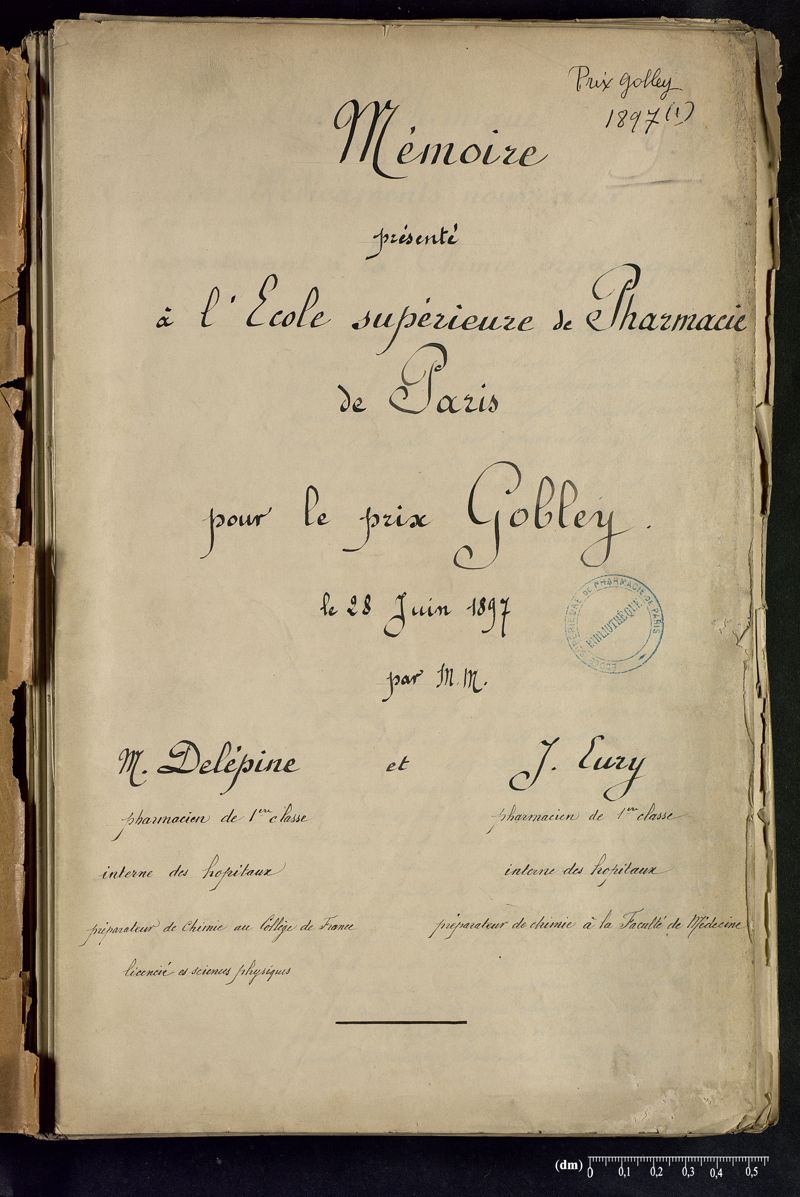 Prix Gobley
1897 (1)
Mémoire
présenté
à l'Ecole supérieure de Pharmacie
de Paris
pour le prix Gobley.
le 28 Juin 1897
ECOLE SUPÉRIEURE DE PHARMACIE DE PARIS
BIBLIOTHÈQUE
par M.M.
M. Delépine et J. Eury
pharmacien de 1ere classe
pharmacien de 1ere classe
interne des hopitaux
interne des hopitaux
préparateur de Chimie au Collège de France
préparateur de chimie à la Faculté de Médecine
licencié es sciences physiques
(dm) 0 0,1 0,2 0,3 0,4 0,5